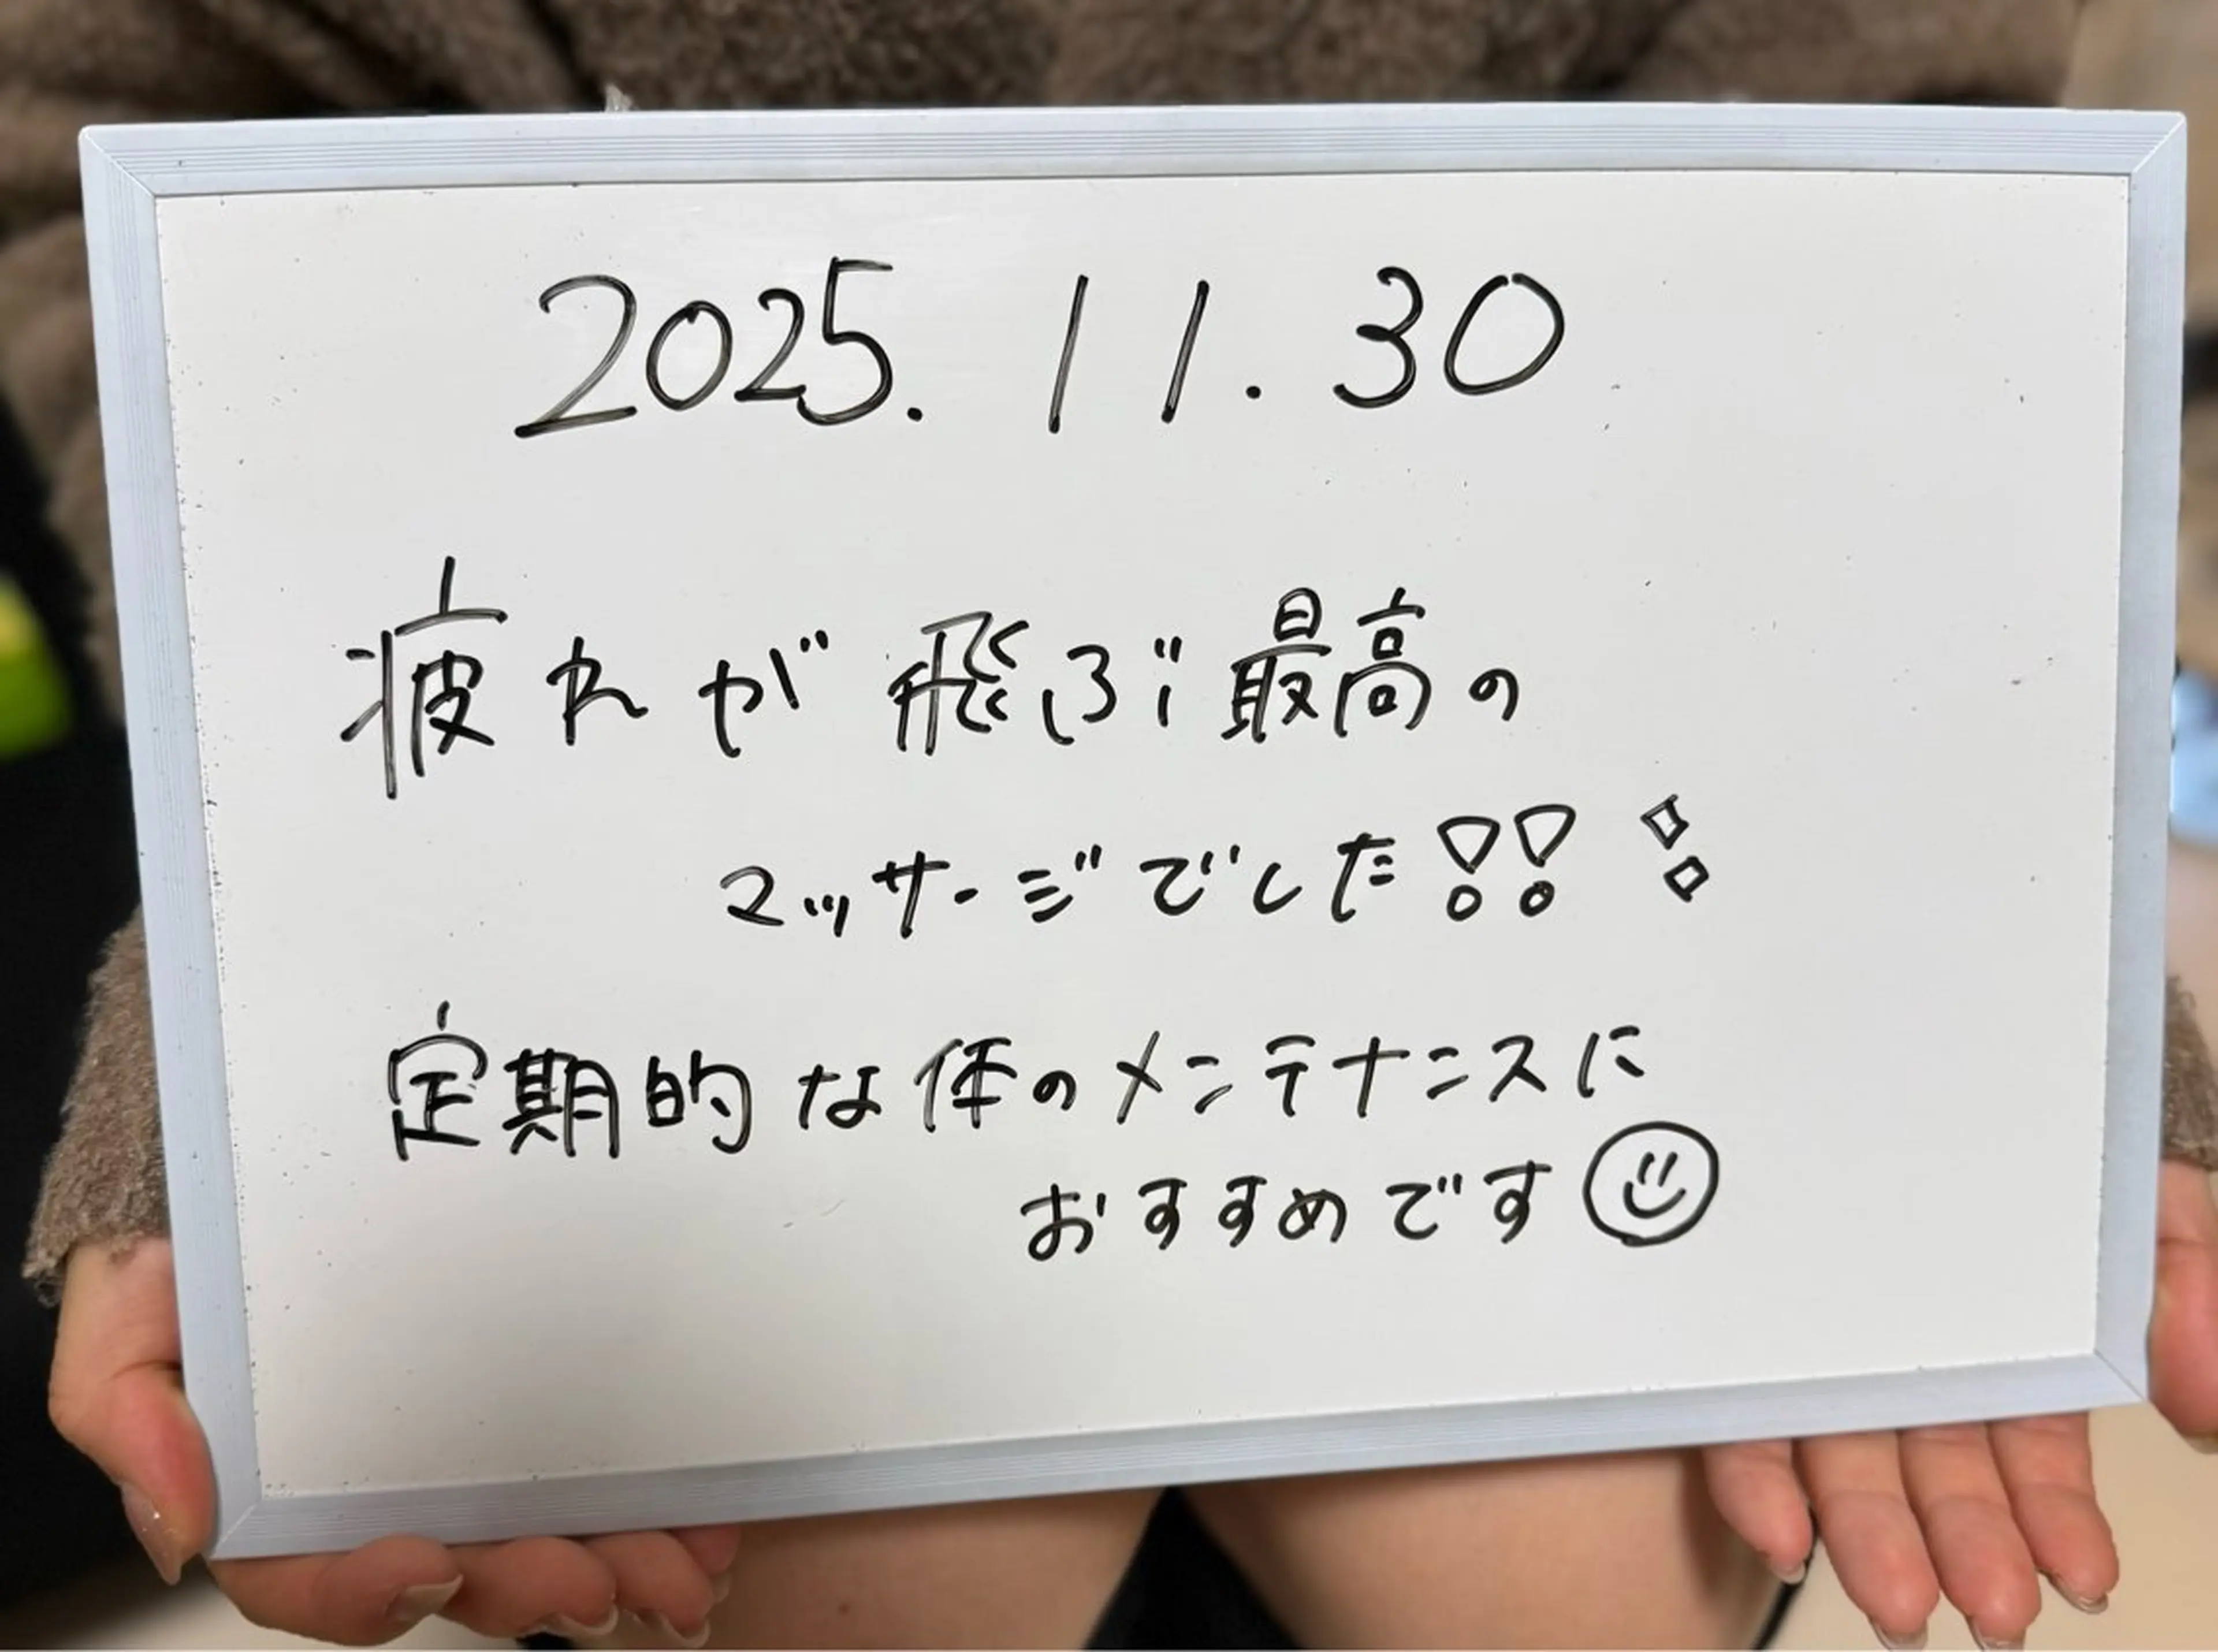 2025. 11. 30
疲れが飛ぶ最高の
マッサージでした!!
定期的な体のメンテナンスに
おすすめです